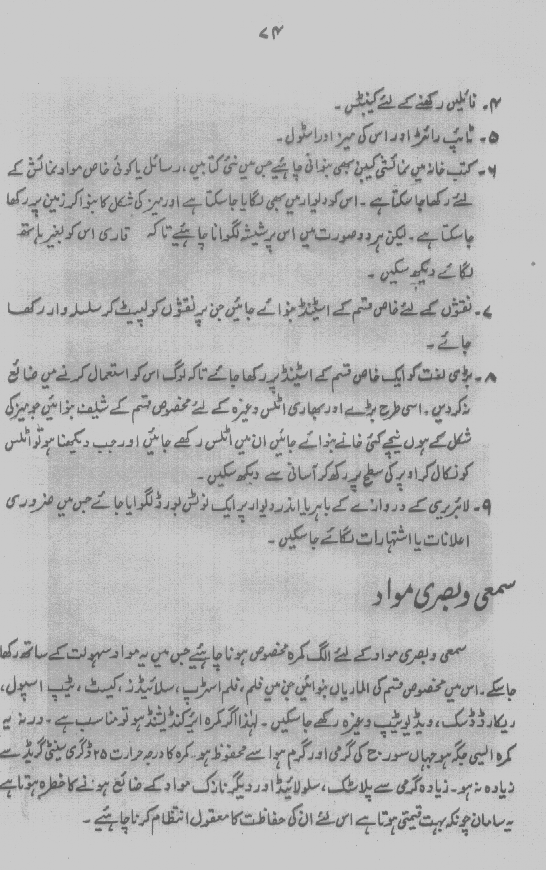 ۷۴
۴۔ فائلیں رکھنے کے لئے کیبنٹس ۔
۵۔ ٹائپ رائٹر اور اس کی میز اور اسٹول۔
۶۔ کتب خانہ میں نمائشی کیبن بھی بنوانی چاہئیے جس میں نئی کتابیں ، رسائل یا کوئی خاص مواد نمائش کے
لئے رکھا جا سکتا ہے ۔ اس کو دیوار میں بھی لگایا جا سکتا ہے اور میز کی شکل کا بنوا کر زمین پر رکھا
جا سکتا ہے ۔ لیکن ہر دو صورت میں اس پر شیشہ لگوانا چاہئیے تاکہ قاری اس کو بغیر ہاتھ
لگائے دیکھ سکیں ۔
۷۔ نقشوں کے لئے خاص قسم کے اسٹینڈ بنوائے جائیں جن پر نقشوں کو لپیٹ کر سلسلہ وار رکھا
جائے ۔
۸۔ بڑی لغت کو ایک خاص قسم کے اسٹینڈ پر رکھا جائے تاکہ لوگ اس کو استعمال کرنے میں ضائع
نہ کر دیں ۔ اسی طرح بڑے اور بھاری اٹلس وغیرہ کے لئے مخصوص قسم کے شیلف بنوائیں جو میز کی
شکل کے ہوں نیچے کئی خانے بنوائے جائیں ان میں اٹلس رکھے جائیں اور جب دیکھنا ہو تو اٹلس
کو نکال کر اوپر کی سطح پر رکھ کر آسانی سے دیکھ سکیں ۔
۹۔ لائبریری کے دروازے کے باہر یا اندر دیوار پر ایک نوٹس بورڈ لگوایا جائے جس میں ضروری
اعلانات یا اشتہارات لگائے جا سکیں ۔
سمعی و بصری مواد
سمعی و بصری مواد کے لئے الگ کمرہ مخصوص ہونا چاہئیے جس میں یہ مواد سہولت کے ساتھ رکھا
جا سکے ۔ اس میں مخصوص قسم کی الماریاں بنوائیں جن میں فلم ، فلم اسٹرپ ، سلائیڈز ، کیسٹ ، ٹیپ اسپول ،
ریکارڈ ڈسک ، ویڈیو ٹیپ وغیرہ رکھے جا سکیں ۔ لہٰذا اگر کمرہ ایئر کنڈیشنڈ ہو تو مناسب ہے ۔ ورنہ یہ
کمرہ ایسی جگہ ہو جہاں سورج کی گرمی اور گرم ہوا سے محفوظ ہو۔ کمرہ کا درجہ حرارت ۲۵ ڈگری سینٹی گریڈ سے
زیادہ نہ ہو ۔ زیادہ گرمی سے پلاسٹک ، سلولائیڈ اور دیگر نازک مواد کے ضائع ہونے کا خطرہ ہوتا ہے
یہ سامان چونکہ بہت قیمتی ہوتا ہے اس لئے ان کی حفاظت کا معقول انتظام کرنا چاہئیے ۔